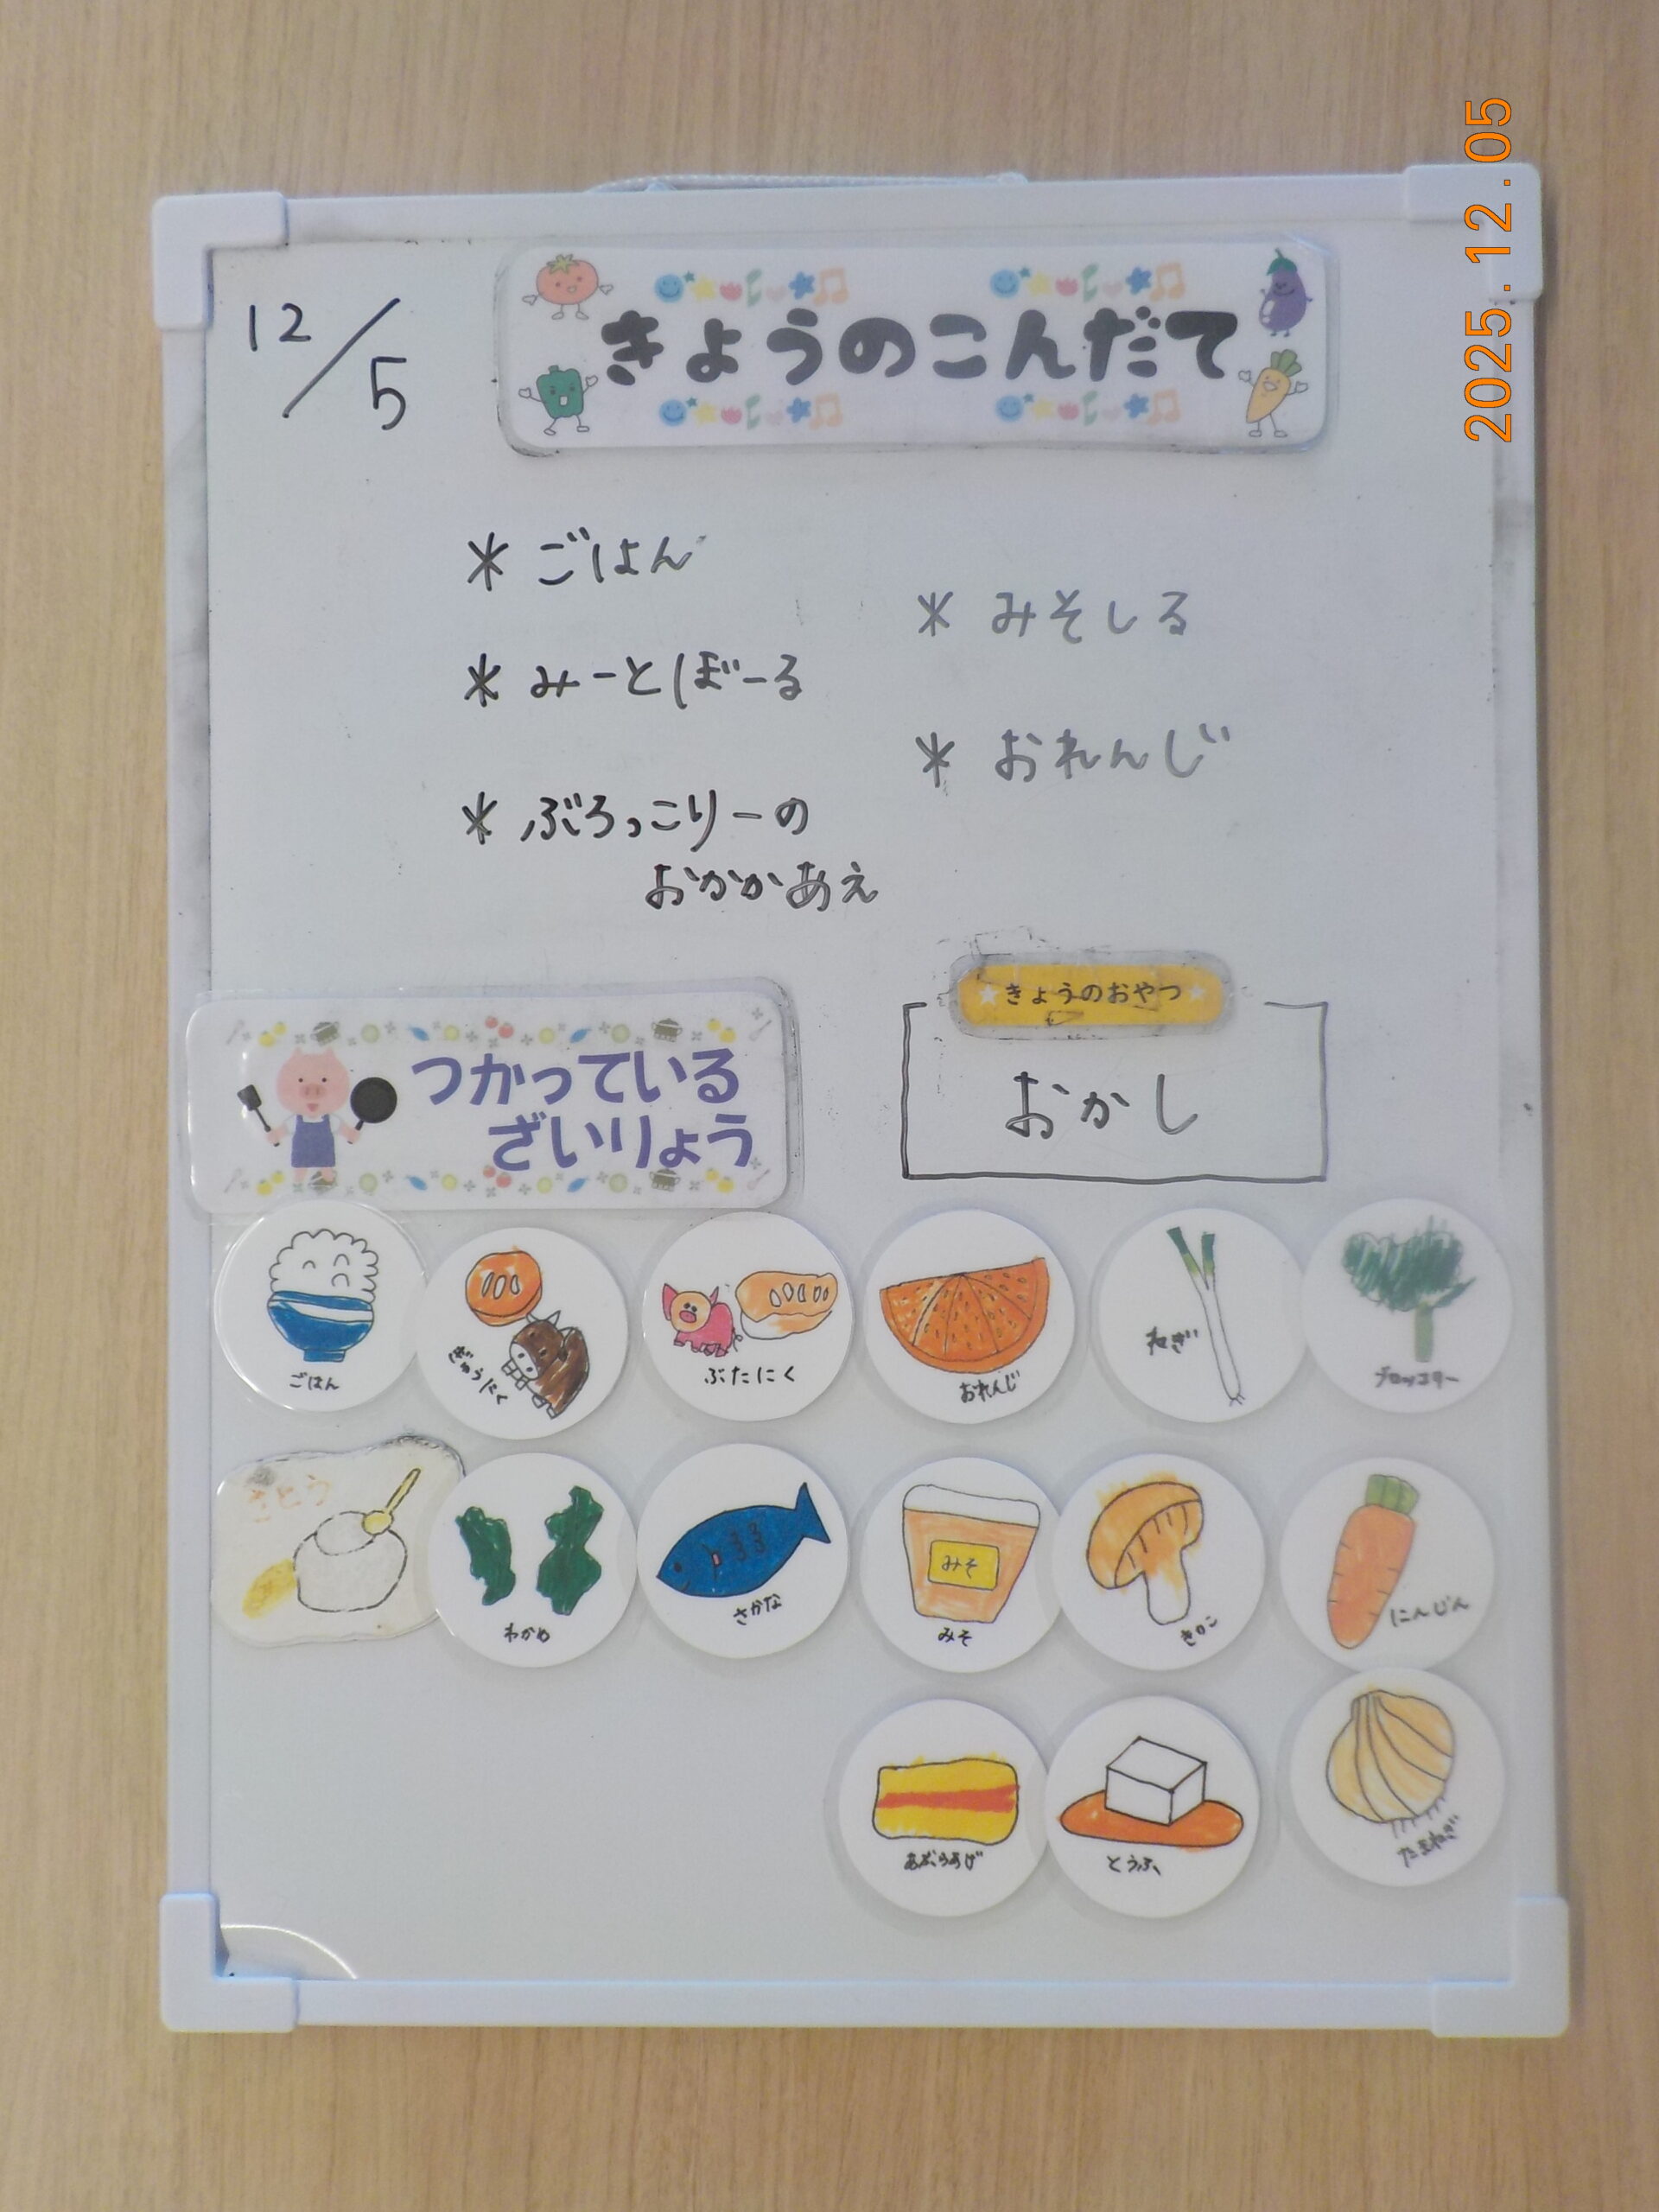 2025.12.05
12/5
きょうのこんだて
* ごはん
* みーとぼーる
* ぶろっこりーの
おかかあえ
* みそしる
* おれんじ
きょうのおやつ
おかし
つかっている
ざいりょう
ごはん
ぎゅうにく
ぶたにく
おれんじ
ねぎ
ブロッコリー
さとう
わかめ
さかな
みそ
みそ
きのこ
にんじん
あぶらあげ
とうふ
たまねぎ